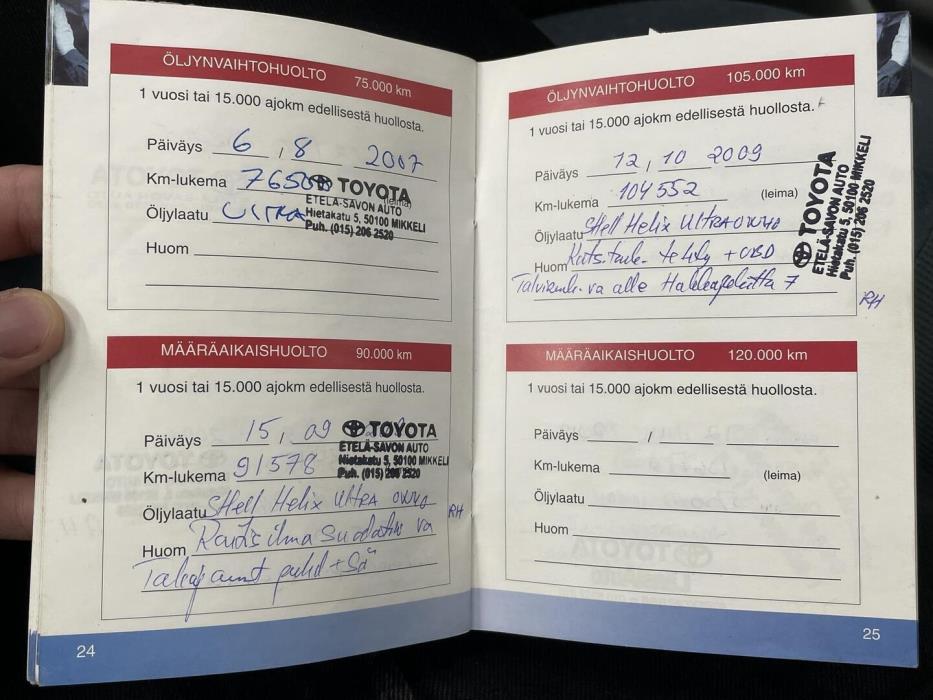 ÖLJYNVAIHTOHUOLTO 75.000 km
1 vuosi tai 15.000 ajokm edellisestä huollosta.
Päiväys 6 , 8 2007
Km-lukema 7650 (leima)
Öljylaatu ULTRA
Huom
TOYOTA
ETELÄ-SAVON AUTO
Hietakatu 5, 50100 MIKKELI
Puh. (015) 206 2520
MÄÄRÄAIKAISHUOLTO 90.000 km
1 vuosi tai 15.000 ajokm edellisestä huollosta.
Päiväys 15, 09
Km-lukema 91578
Öljylaatu Shell Helix Ultra RH
Huom Raitis ilma suodatin va
Takajarrut puhd +
TOYOTA
ETELÄ-SAVON AUTO
Hietakatu 5, 50100 MIKKELI
Puh. (015) 206 2520
24
ÖLJYNVAIHTOHUOLTO 105.000 km
1 vuosi tai 15.000 ajokm edellisestä huollosta.
Päiväys 12, 10 2009
Km-lukema 104552 (leima)
Öljylaatu Shell Helix ULTRA
Huom Kuts.tark. tehty + OBD
va alle Hakkapeliitta 7
RH
TOYOTA
ETELÄ-SAVON AUTO
Hietakatu 5, 50100 MIKKELI
Puh. (015) 206 2520
MÄÄRÄAIKAISHUOLTO 120.000 km
1 vuosi tai 15.000 ajokm edellisestä huollosta.
Päiväys /
Km-lukema (leima)
Öljylaatu
Huom
25